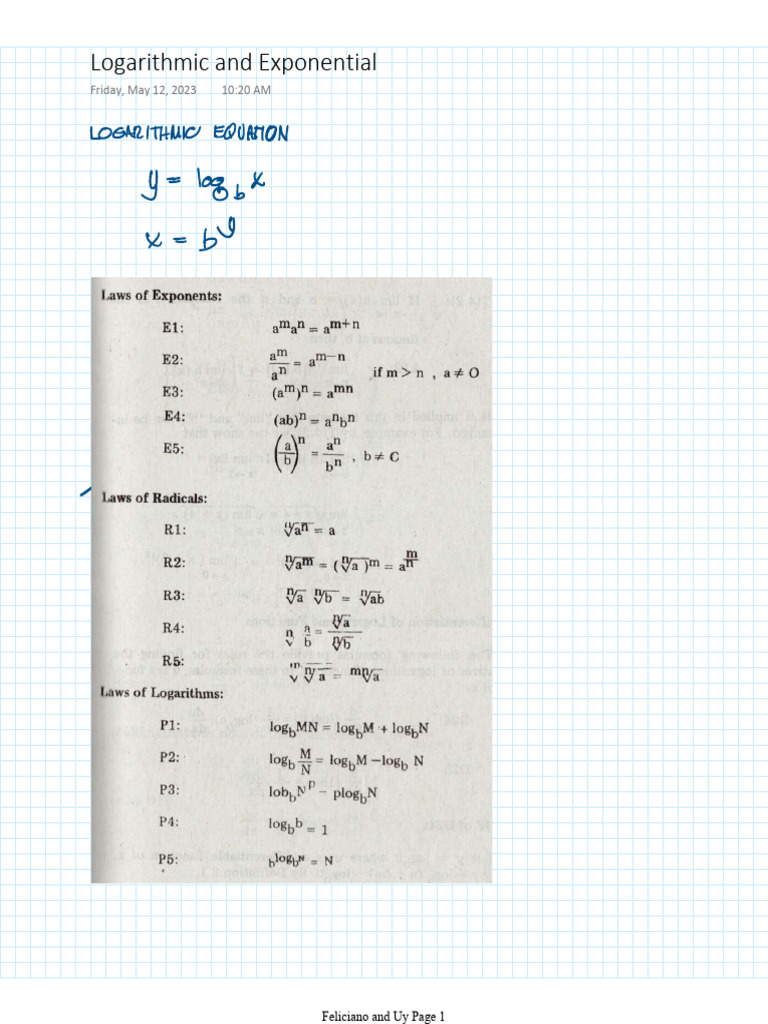 Logarithmic and Exponential
Friday, May 12, 2023 10:20 AM
LOGARITHMIC EQUATION
y = log_b x
x = b^y
Laws of Exponents:
E1: a^m a^n = a^{m+n}
E2: a^m / a^n = a^{m-n} if m > n , a ≠ O
E3: (a^m)^n = a^{mn}
E4: (ab)^n = a^n b^n
E5: (a/b)^n = a^n / b^n , b ≠ C
Laws of Radicals:
R1: ⁿ√a^n = a
R2: ⁿ√a^m = (ⁿ√a )^m = a^{m/n}
R3: ⁿ√a ⁿ√b = ⁿ√ab
R4: ⁿ√ a/b = ⁿ√a / ⁿ√b
R5: ᵐ√ ⁿ√a = ᵐⁿ√a
Laws of Logarithms:
P1: log_b MN = log_b M + log_b N
P2: log_b M/N = log_b M – log_b N
P3: lob_b N^p – plog_b N
P4: log_b b = 1
P5: b^{log_b N} = N
Feliciano and Uy Page 1